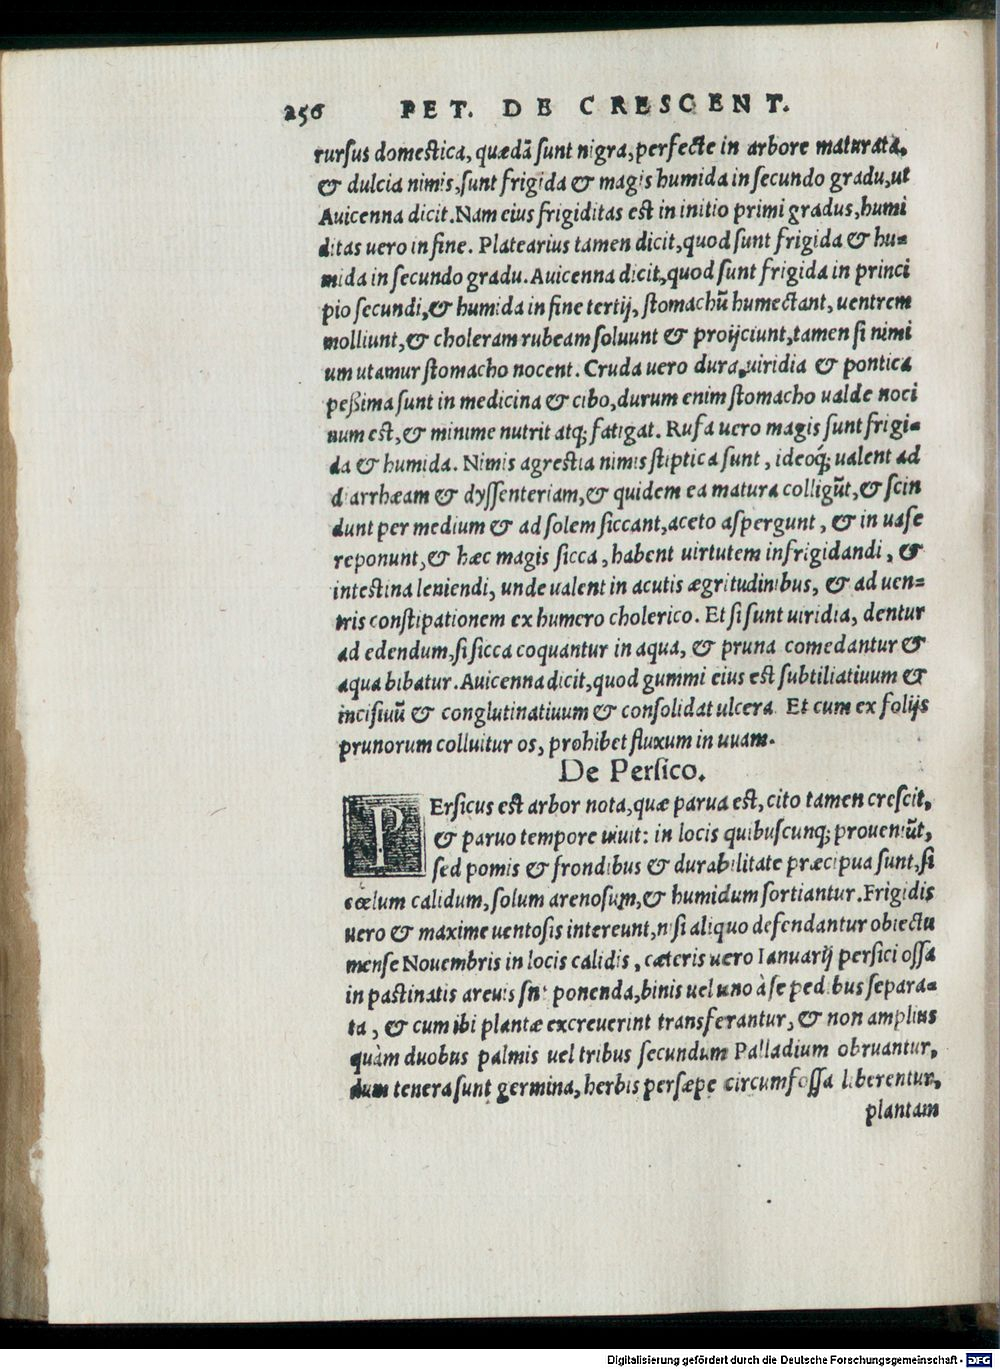 256 PET. DE CRESCENT.
rursus domestica, quædā sunt nigra, perfecte in arbore maturata,
& dulcia nimis, sunt frigida & magis humida in secundo gradu, ut
Auicenna dicit. Nam eius frigiditas est in initio primi gradus, humi
ditas uero in fine. Platearius tamen dicit, quod sunt frigida & hu=
mida in secundo gradu. Auicenna dicit, quod sunt frigida in princi
pio secundi, & humida in fine tertij, stomachū humectant, uentrem
molliunt, & choleram rubeam soluunt & proijciunt, tamen si nimi
um utamur stomacho nocent. Cruda uero dura, uiridia & pontica
peßima sunt in medicina & cibo, durum enim stomacho ualde noci
num est, & minime nutrit atq; fatigat. Rufa uero magis sunt frigi=
da & humida. Nimis agrestia nimis stiptica sunt, ideoq́; ualent ad
diarrhæam & dyssenteriam, & quidem ea matura colligūt, & scin
dunt per medium & ad solem siccant, aceto aspergunt, & in uase
reponunt, & hæc magis sicca, habent uirtutem infrigidandi, &
intestina leniendi, unde ualent in acutis ægritudinibus, & ad uen=
tris constipationem ex humero cholerico. Et si sunt uiridia, dentur
ad edendum, si sicca coquantur in aqua, & pruna comedantur &
aqua bibatur. Auicenna dicit, quod gummi eius est subtiliatiuum &
incisiuū & conglutinatiuum & consolidat ulcera. Et cum ex folijs
prunorum colluitur os, prohibet fluxum in uuam.
De Persico.
PErsicus est arbor nota, quæ parua est, cito tamen crescit,
& paruo tempore uiuit: in locis quibuscunq; proueniūt,
sed pomis & frondibus & durabilitate præcipua sunt, si
cœlum calidum, solum arenosum, & humidum sortiantur. Frigidis
uero & maxime uentosis intereunt, nisi aliquo defendantur obiectu
mense Nouembris in locis calidis, cæteris uero Ianuarij persici ossa
in pastinatis areuis sn̄t ponenda, binis uel uno à se pedibus separa=
ta, & cum ibi plantæ excreuerint transferantur, & non amplius
quàm duobus palmis uel tribus secundum Palladium obruantur,
dum tenera sunt germina, herbis persæpe circumfossa liberentur,
plantam
Digitalisierung gefördert durch die Deutsche Forschungsgemeinschaft - DFG